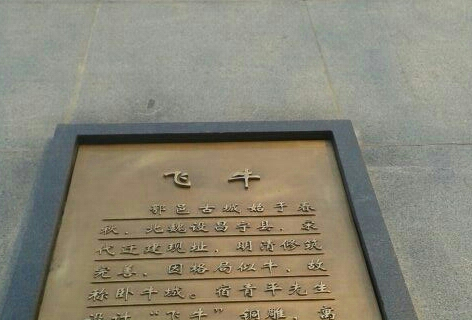 飞牛
鄂邑古城始于春
秋，北魏设昌宁县，宋
代迁建现址，明清修筑
完善，因格局似牛，故
称卧牛城。宿青平先生
设计“飞牛”铜雕，寓